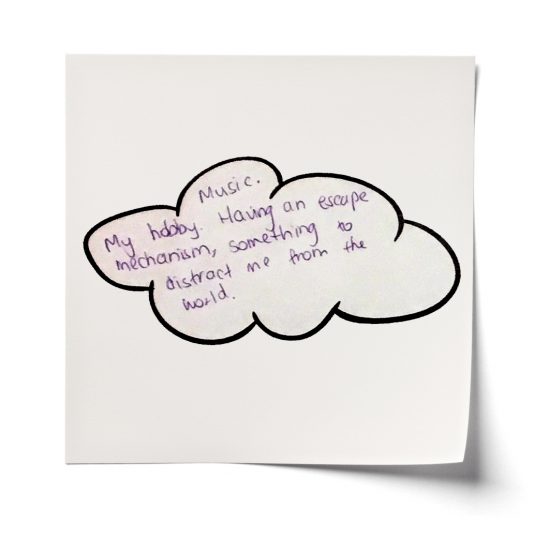 Music.
My hobby. Having an escape
mechanism, something to
distract me from the
world.